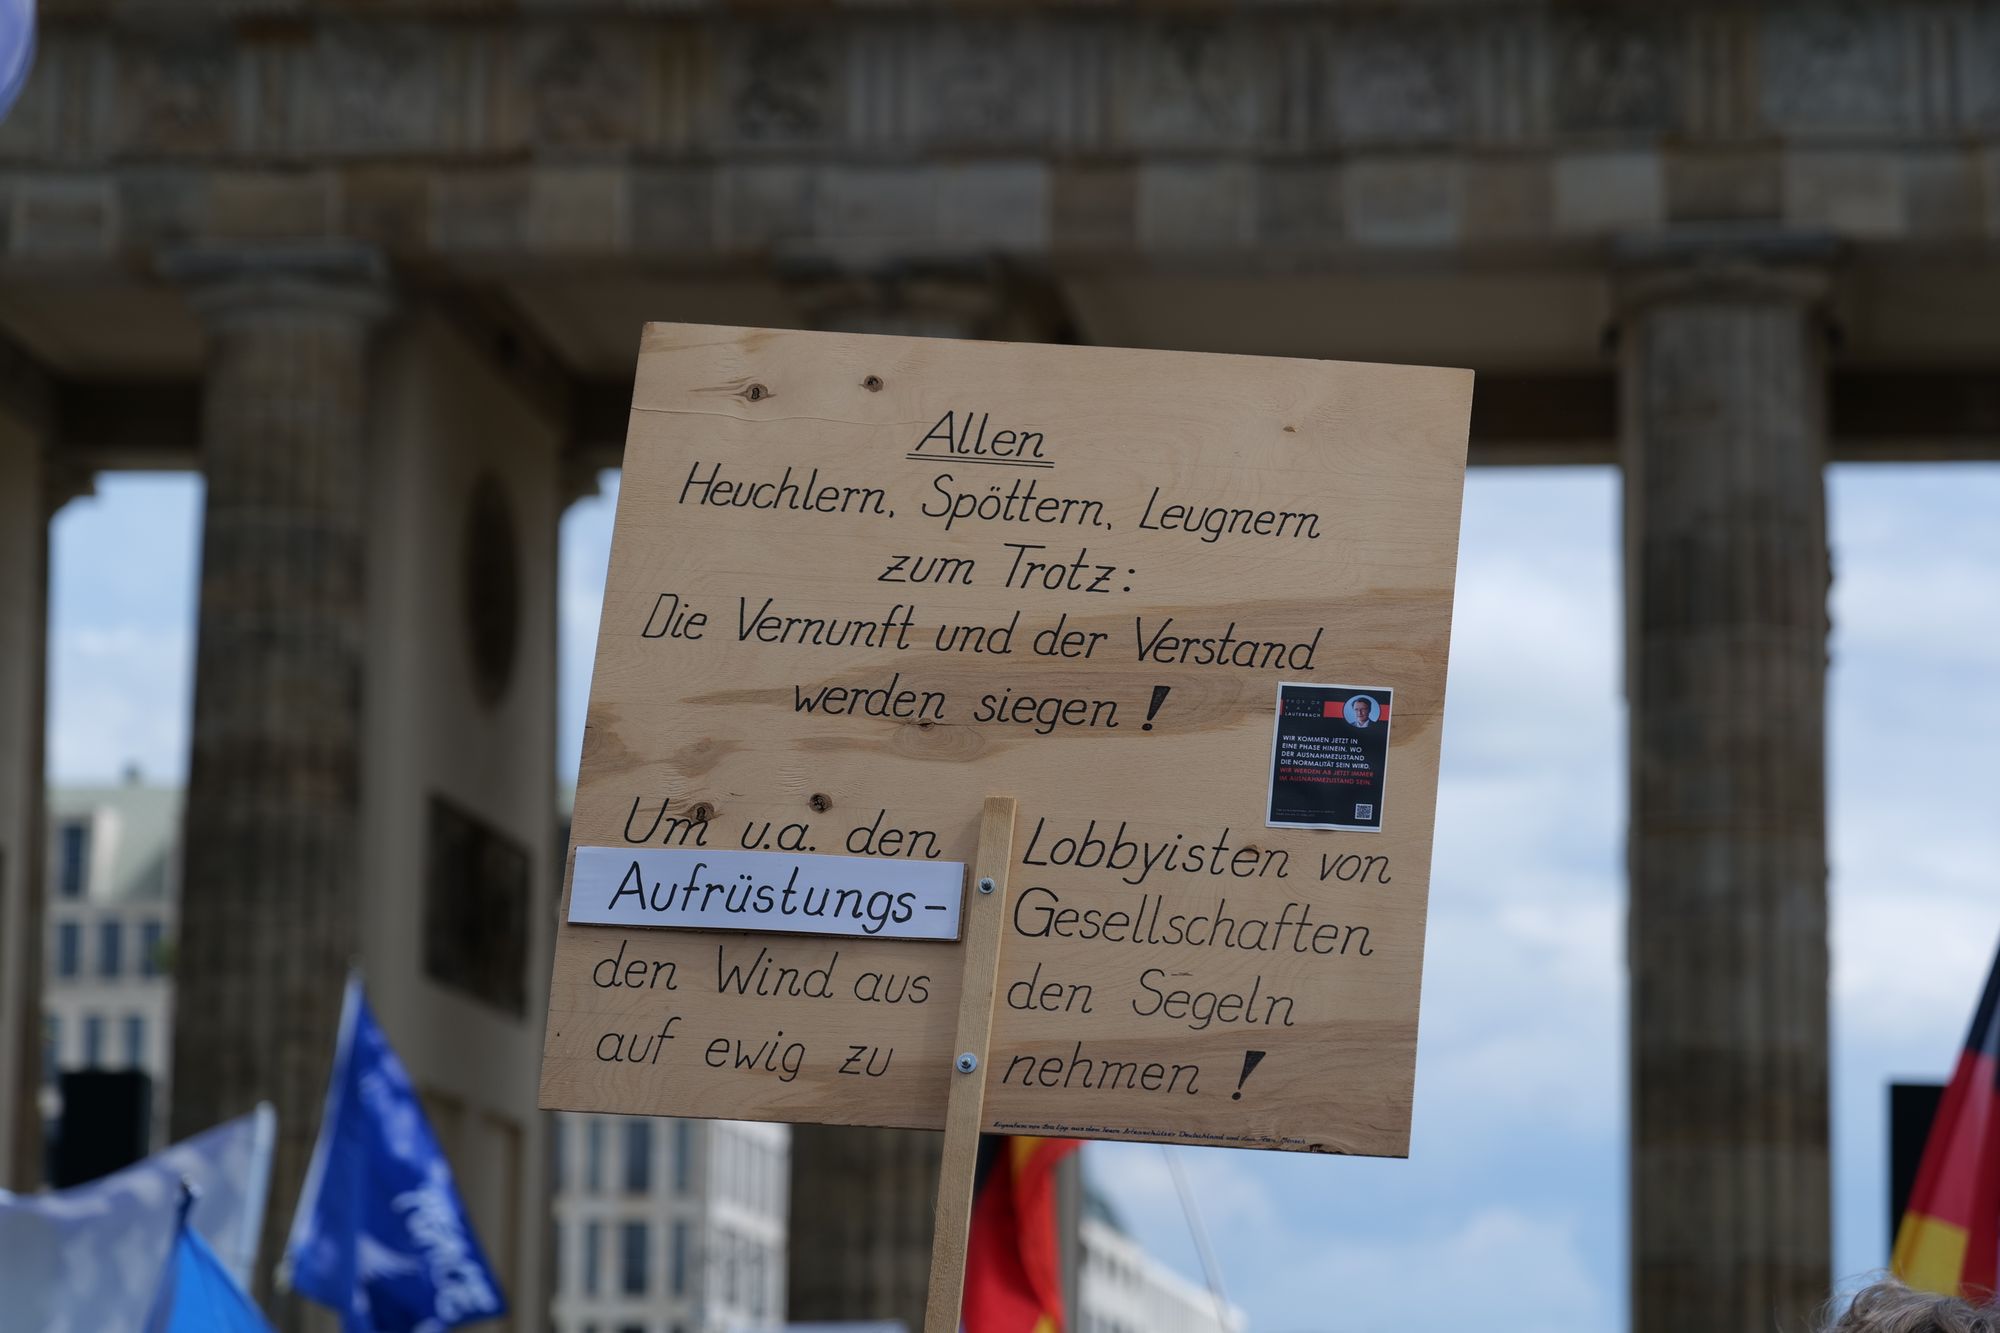 Allen
Heuchlern, Spöttern, Leugnern
zum Trotz:
Die Vernunft und der Verstand
werden siegen!
PROF. DR.
KARL
LAUTERBACH
WIR KOMMEN JETZT IN
EINE PHASE HINEIN, WO
DER AUSNAHMEZUSTAND
DIE NORMALITÄT SEIN WIRD.
WIR WERDEN AB JETZT IMMER
IM AUSNAHMEZUSTAND SEIN.
Um u.a. den Lobbyisten von
Aufrüstungs- Gesellschaften
den Wind aus den Segeln
auf ewig zu nehmen!
aus dem Team Deutschland und dem
PEACE